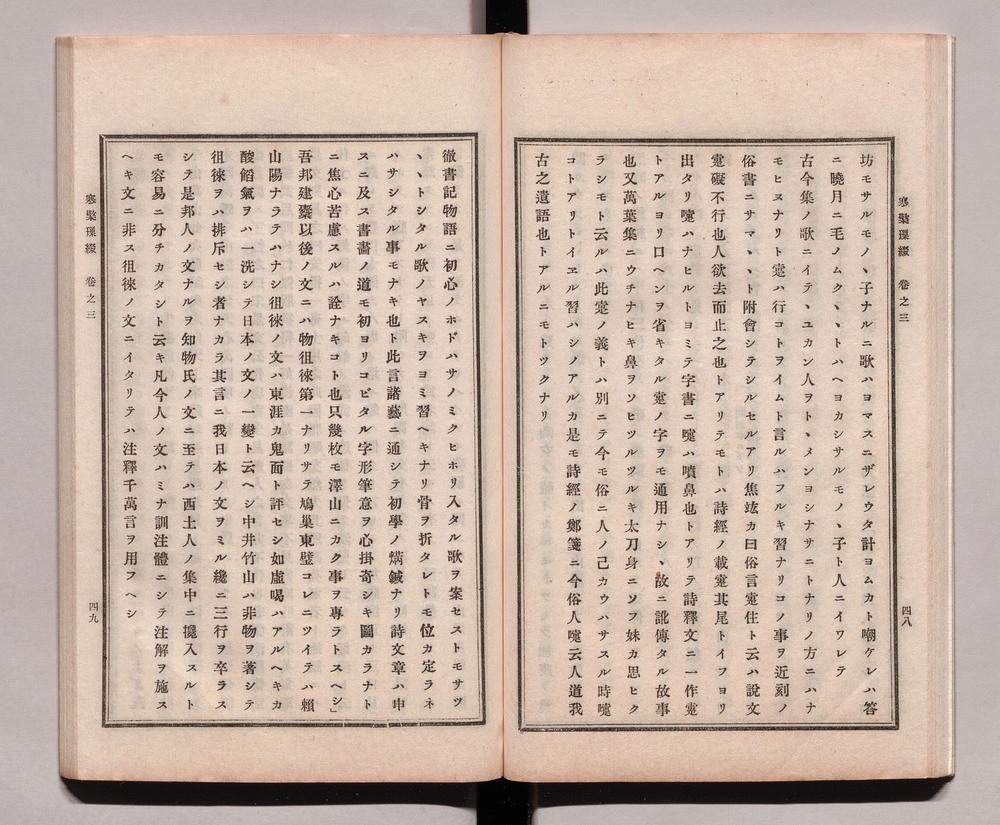 寒檠璅綴　卷之三
四八
坊モサルモノヽ子ナルニ歌ハヨマスニザレウタ計ヨムカト嘲ケレハ答
ニ曉月ニ毛ノムクヽヽトハヘヨカシサルモノヽ子ト人ニイワレテ
古今集ノ歌ニイテヽユカン人ヲトヽメンヨシナサニトナリノ方ニハナ
モヒヌナリト疐ハ行コトヲイムト言ルハフルキ習ナリコノ事ヲ近刻ノ
俗書ニサマヽヽト附會シテシルセルアリ焦竑カ曰俗言疐住ト云ハ說文
疐礙不行也人欲去而止之也トアリテモトハ詩經ノ載疐其尾トイフヨリ
出タリ嚏ハナヒルトヨミテ字書ニ嚏ハ噴鼻也トアリテ詩釋文ニ一作疐
トアルヨリ口ヘンヲ省キタル疐ノ字ヲモ通用ナシヽ故ニ訛傳タル故事
也又萬葉集ニウチナヒキ鼻ヲソヒツルツルキ太刀身ニソフ妹カ思ヒク
ラシモト云ルハ此疐ノ義トハ別ニテ今モ俗ニ人ノ己カウハサスル時嚏
コトアリトイヱル習ハシノアルカ是モ詩經ノ鄭箋ニ今俗人嚏云人道我
古之遺語也トアルニモトツクナリ
徹書記物語ニ初心ノホドハサノミクヒホリ入タル歌ヲ案セストモサツ
ヽヽトシタル歌ノヤスキヲヨミ習ヘキナリ骨ヲ折タレトモ位カ定ラネ
ハサシタル事モナキ也ト此言諸藝ニ通シテ初學ノ炳鍼ナリ詩文章ハ申
スニ及ス書畵ノ道モ初ヨリコビタル字形筆意ヲ心掛奇シキ圖カラナト
ニ焦心苦慮スルハ詮ナキコト也只幾枚モ澤山ニカク事ヲ專ラトスヘシ」
吾邦建櫜以後ノ文ニハ物徂徠第一ナリサテ鳩巢東壁コレニツイテハ賴
山陽ナラテハナシ徂徠ノ文ハ東涯カ鬼面ト評セシ如虛喝ハアルヘキカ
酸餡氣ヲハ一洗シテ日本ノ文ノ一變ト云ヘシ中井竹山ハ非物ヲ著シテ
徂徠ヲハ排斥セシ者ナカラ其言ニ我日本ノ文ヲミル纔ニ三行ヲ卒ラス
シテ是邦人ノ文ナルヲ知物氏ノ文ニ至テハ西土人ノ集中ニ攙入スルト
モ容易ニ分チカタシト云キ凡今人ノ文ハミナ訓注體ニシテ注解ヲ施ス
ヘキ文ニ非ス徂徠ノ文ニイタリテハ注釋千萬言ヲ用フヘシ
寒檠璅綴　卷之三
四九